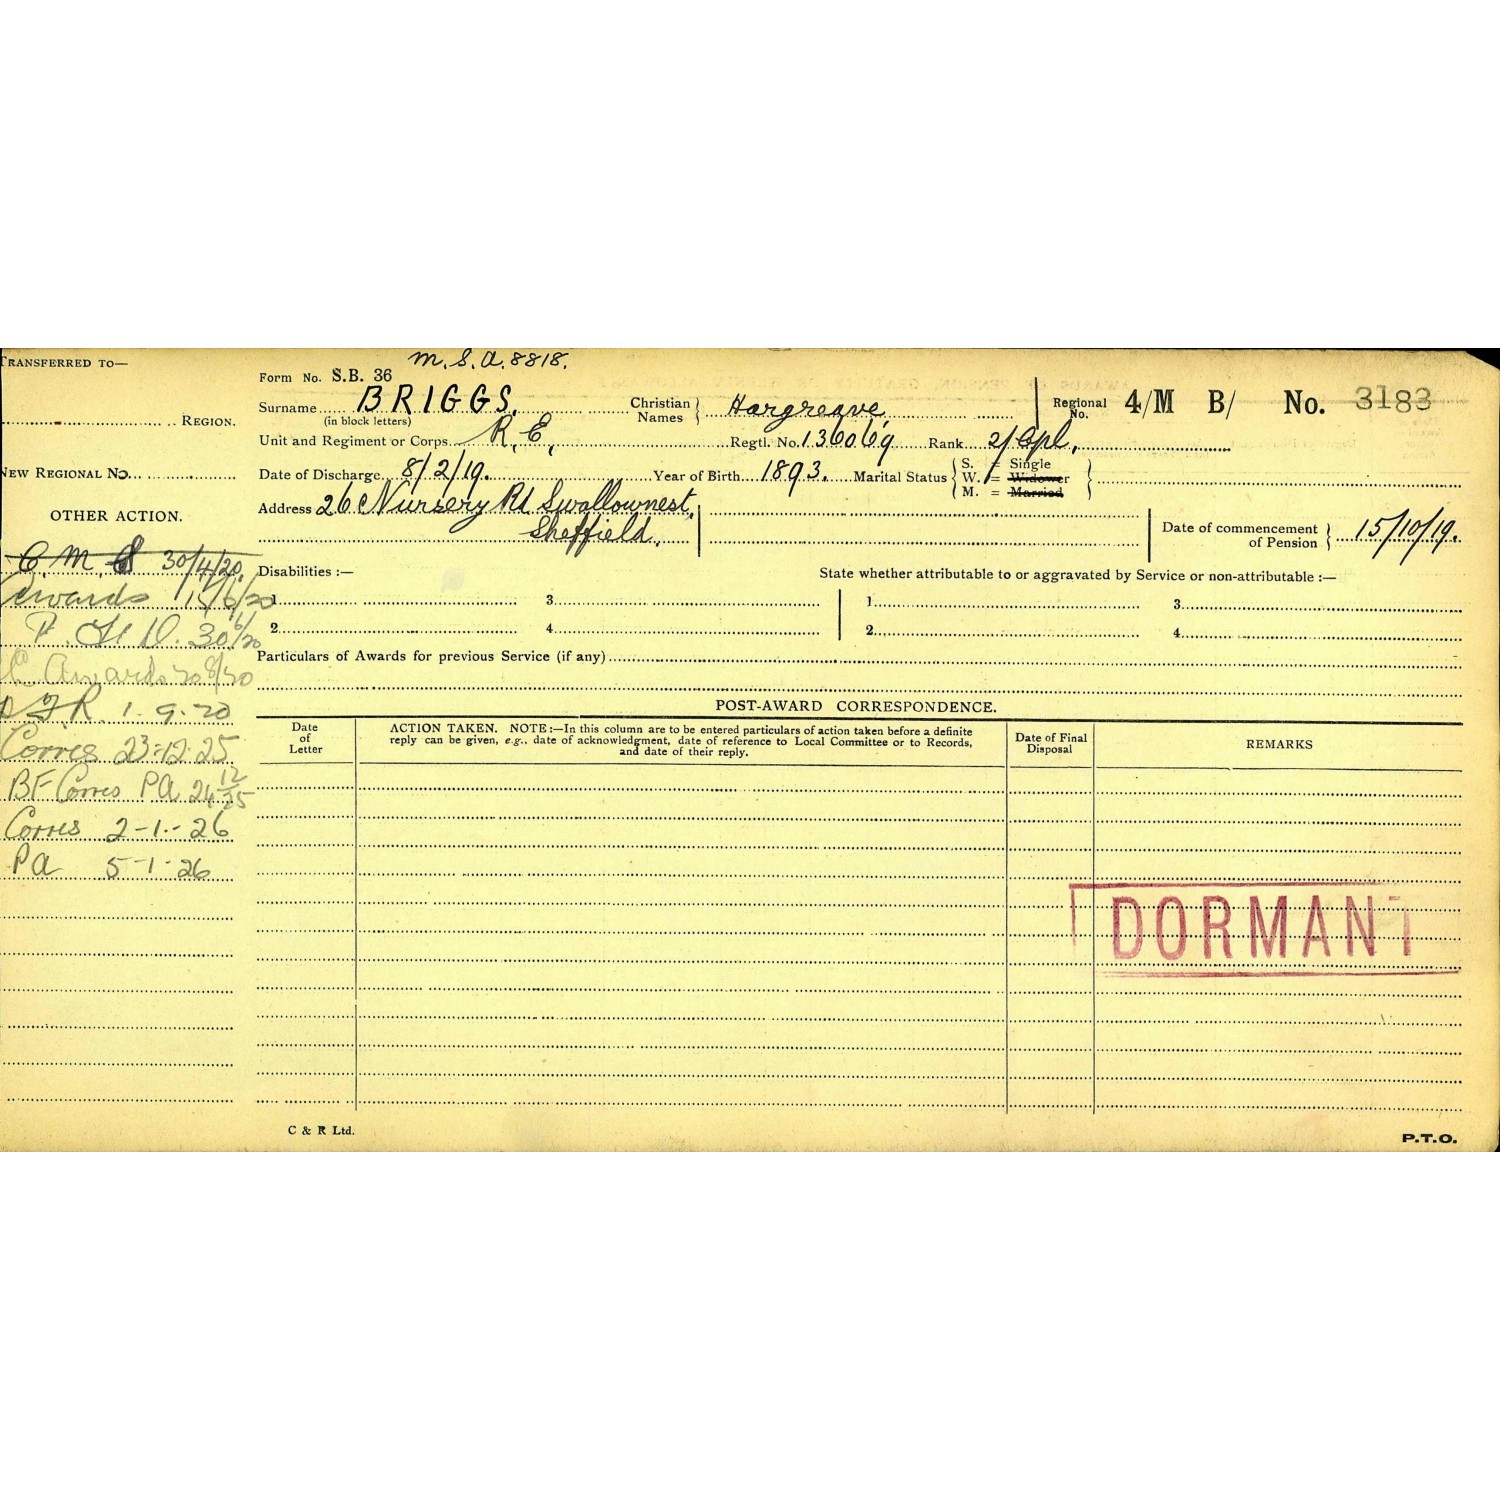 TRANSFERRED TO—
REGION.
NEW REGIONAL No.
OTHER ACTION.
C.M.S 30/4/20.
Awards 15/6/20
P. 30 6/20
Awards 20 8/20
R 1. 9. 20
Corres 23.12.25
BF Corres PA 24 12/25
Corres 2-1-26
PA 5-1-26
M.S.A. 8818.
Form No. S.B. 36
Surname BRIGGS. Christian Names Hargreave, Regional No. 4/M B/ No. 3183
(in block letters)
Unit and Regiment or Corps R.E. Regtl. No. 136069 Rank 2/Cpl,
Date of Discharge 8/2/19. Year of Birth 1893. Marital Status S. = Single
W. = Widower
M. = Married
Address 26 Nursery Rd Swallownest,
Sheffield.
Date of commencement of Pension 15/10/19.
Disabilities :— State whether attributable to or aggravated by Service or non-attributable :—
1 3 1 3
2 4 2 4
Particulars of Awards for previous Service (if any)
POST-AWARD CORRESPONDENCE.
Date of Letter
ACTION TAKEN. NOTE:—In this column are to be entered particulars of action taken before a definite
reply can be given, e.g., date of acknowledgment, date of reference to Local Committee or to Records,
and date of their reply.
Date of Final Disposal
REMARKS
DORMANT
C & R Ltd.
P.T.O.